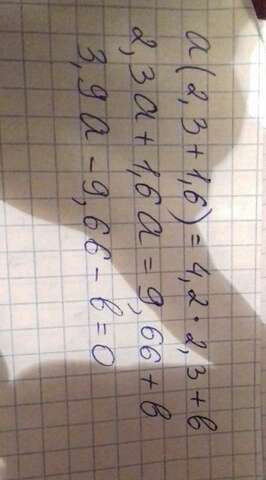 a(2,3+1,6)=4,2·2,3+b
2,3a+1,6a=9,66+b
3,9a-9,66-b=0